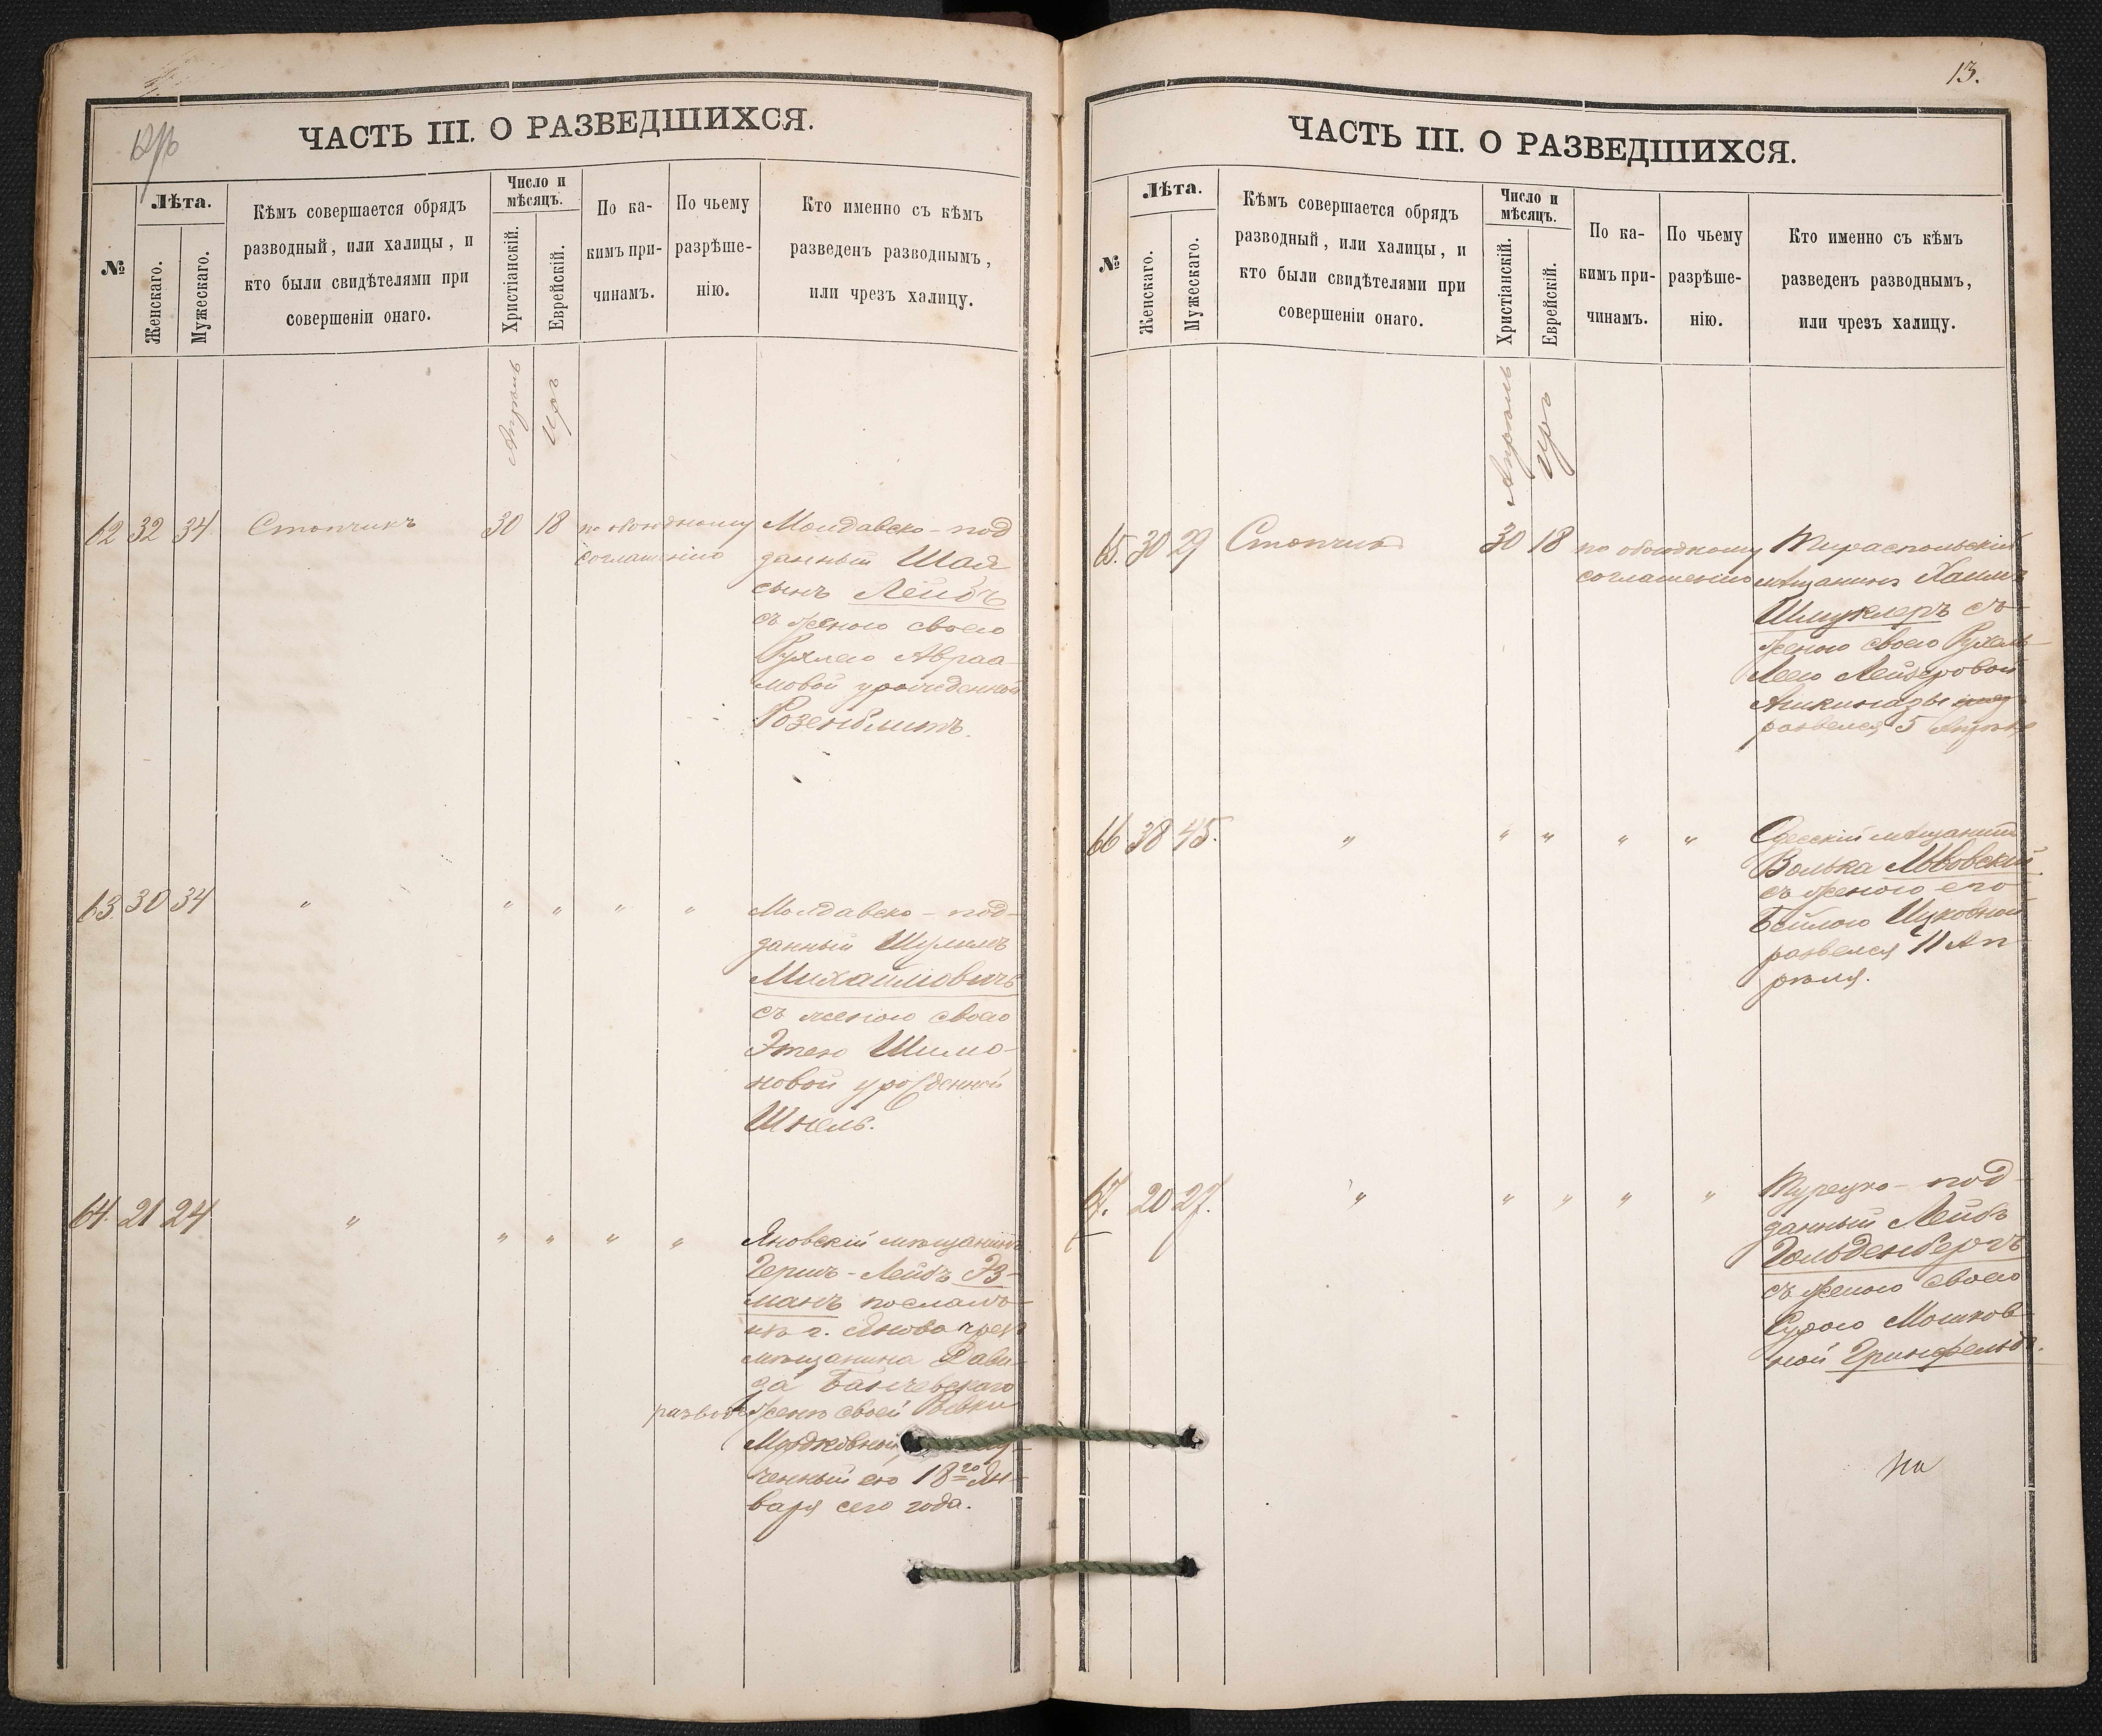 ЧАСТЬ III. О РАЗВЕДШИХСЯ.
№
Лѣта.
Женскаго.
Мужескаго.
Кѣмъ совершается обрядъ
разводный, или халицы, и
кто были свидѣтелями при
совершеніи онаго.
Число и
мѣсяцъ.
Христіанскій.
Еврейскій.
По ка-
кимъ при-
чинамъ.
По чьему
разрѣше-
нію.
Кто именно съ кѣмъ
разведенъ разводнымъ,
или чрезъ халицу.
Апрель
Иръ
62 32 34 Стопчикъ 30 18 по обоюдному
соглашенію
Молдавско-под
данный Шая
сынъ Лейбъ
съ женою своею
Рухлею Авраа-
мовой урожденной
Розенблитъ.
63. 30 34 " " " " "
Молдавско-под-
данный Шулимъ
Михаиловичъ
съ женою своею
Этею Шимо-
новой урожденной
Шнель.
64. 21 24 " " " " "
Яновскій мѣщанинъ
Гершъ-Лейбъ Эз-
манъ послалъ
изъ г. Янова чрезъ
мѣщанина Дави-
да
разводъ женѣ своей Ривки
Мордковной,
ченный ею 18го Ян-
варя сего года.
13.
ЧАСТЬ III. О РАЗВЕДШИХСЯ.
№
Лѣта.
Женскаго.
Мужескаго.
Кѣмъ совершается обрядъ
разводный, или халицы, и
кто были свидѣтелями при
совершеніи онаго.
Число и
мѣсяцъ.
Христіанскій.
Еврейскій.
По ка-
кимъ при-
чинамъ.
По чьему
разрѣше-
нію.
Кто именно съ кѣмъ
разведенъ разводнымъ,
или чрезъ халицу.
Апрель
Иръ
65. 30 29 Стопчикъ 30 18 по обоюдному
соглашенію
Тираспольскій
мѣщанинъ Хаимъ
Шмуклеръ съ
женою своею Рухель
Леею Лейзеровой
Ашкинази
развелся 5 Апреля
66 38 45. " " " " "
Одесскій мѣщанинъ
Волька Львовскій
съ женою его
Бейлою Ицковной
развелся 11 Ап-
реля.
67. 20 27. " " " " "
Турецко-под-
данный Лейбъ
Гольденбергъ
съ женою своею
Сурою Мошков-
ной Гринфельдъ.